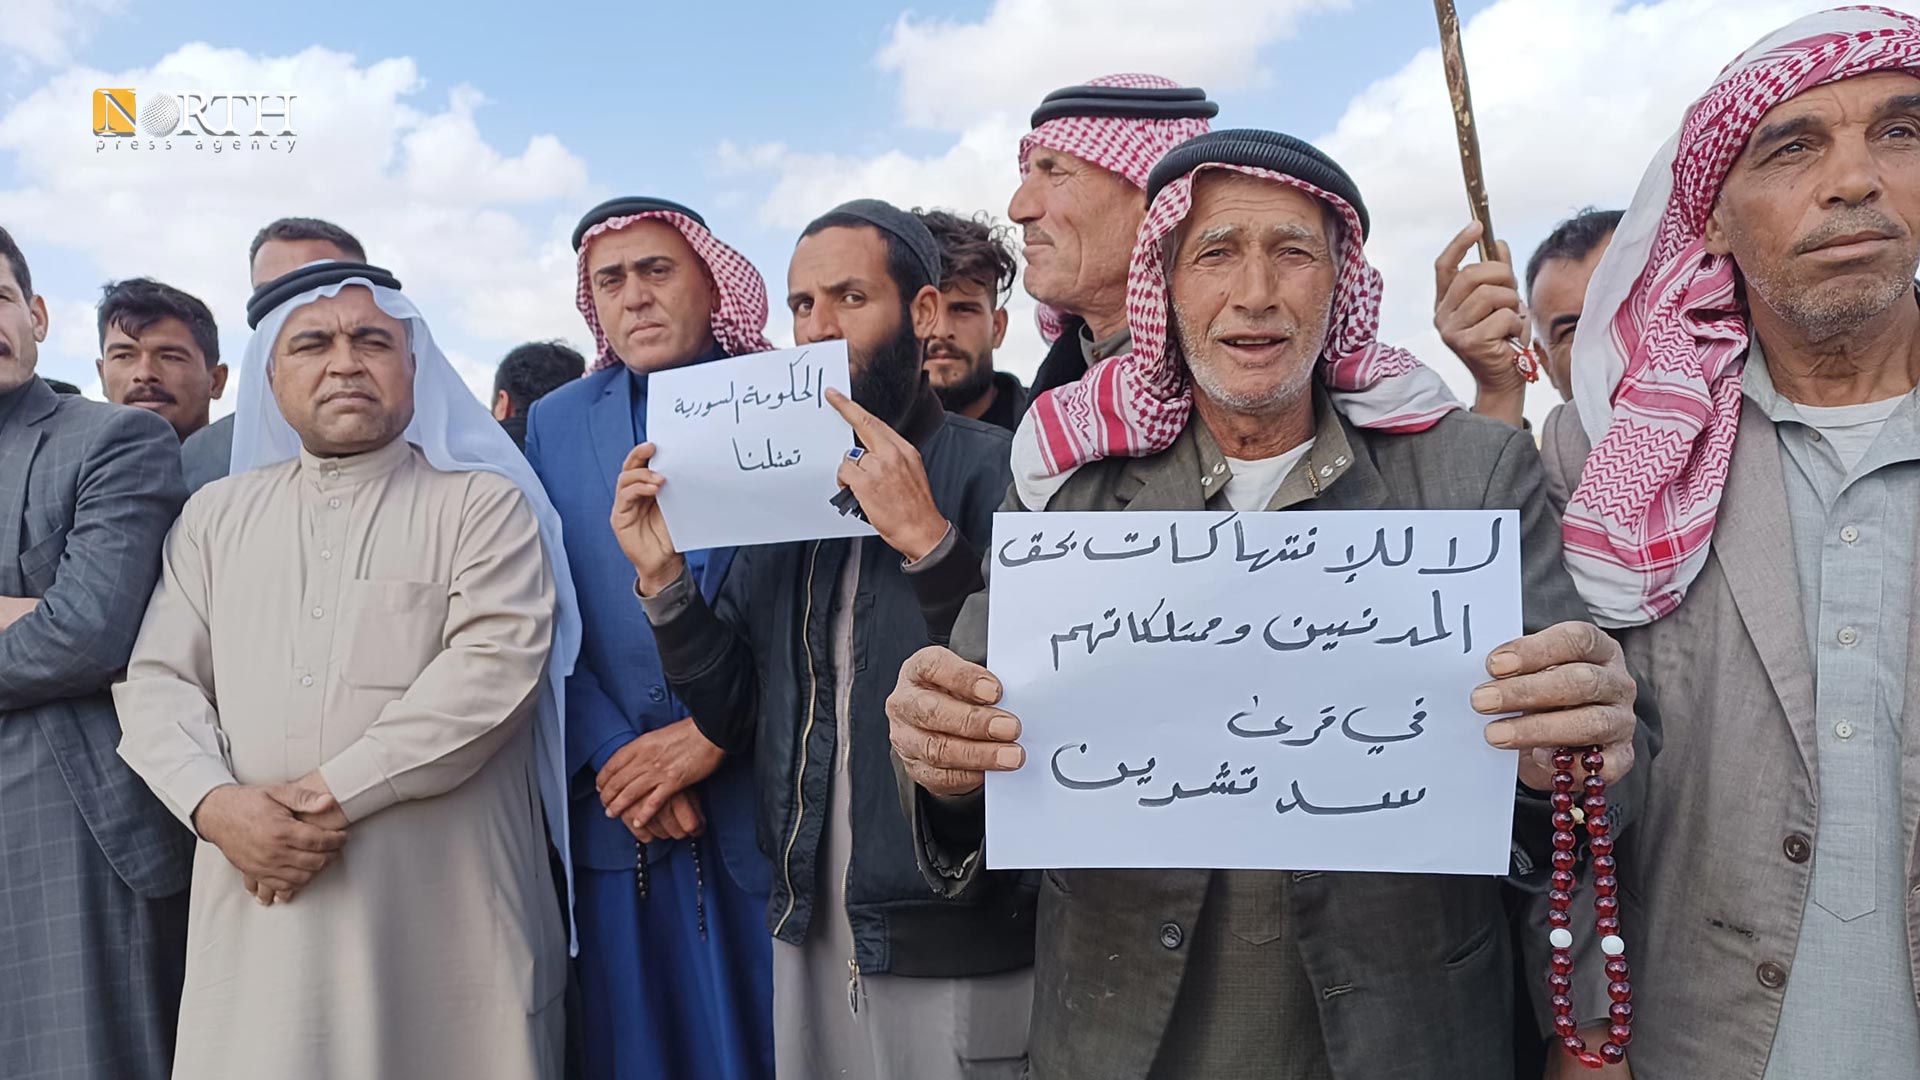 NORTH
press agency
الحكومة السورية
تمثلنا
لا للإنتهاكات بحق
المدنيين وممتلكاتهم
في قرى
سد تشرين